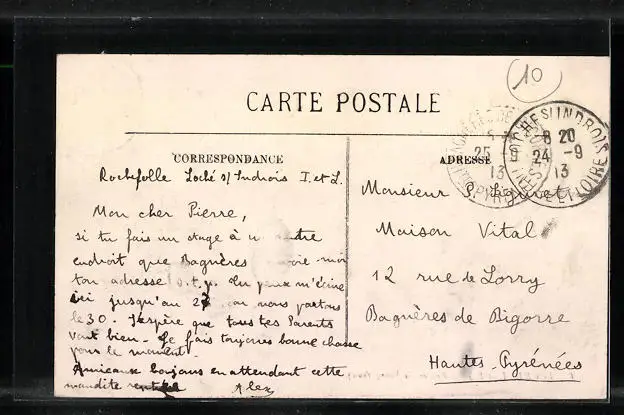 10
CARTE POSTALE
CORRESPONDANCE
ADRESSE
LOCHES INDROIS
8 20
24 - 9
13
ET LOIRE
25 - 9
13
Rochefolle Loché s/ Indrois I. et L.
Mon cher Pierre,
si tu fais un stage à un autre
endroit que Bagnères envoie moi
ton adresse s.t.p. Tu peux m'écrire
ici jusqu'au 27 car nous partons
le 30. J'espère que tous tes Parents
vont bien - Je fais toujours bonne chasse
pour le moment -
Amicaux bonjours en attendant cette
maudite rentrée Alex
Monsieur P.
Maison Vital
12 rue de Lorry
Bagnères de Bigorre
Hautes-Pyrénées